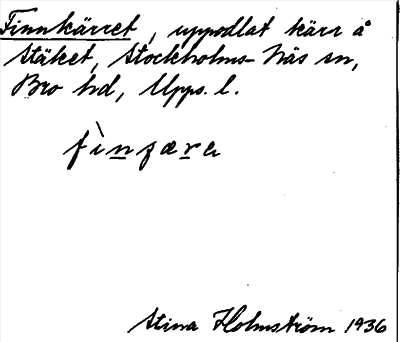 Finnkärret, uppodlat kärr å
Stäket, Stockholms-Näs sn,
Bro hd, Upps. l.
fìnɟæra
Stina Holmström 1936